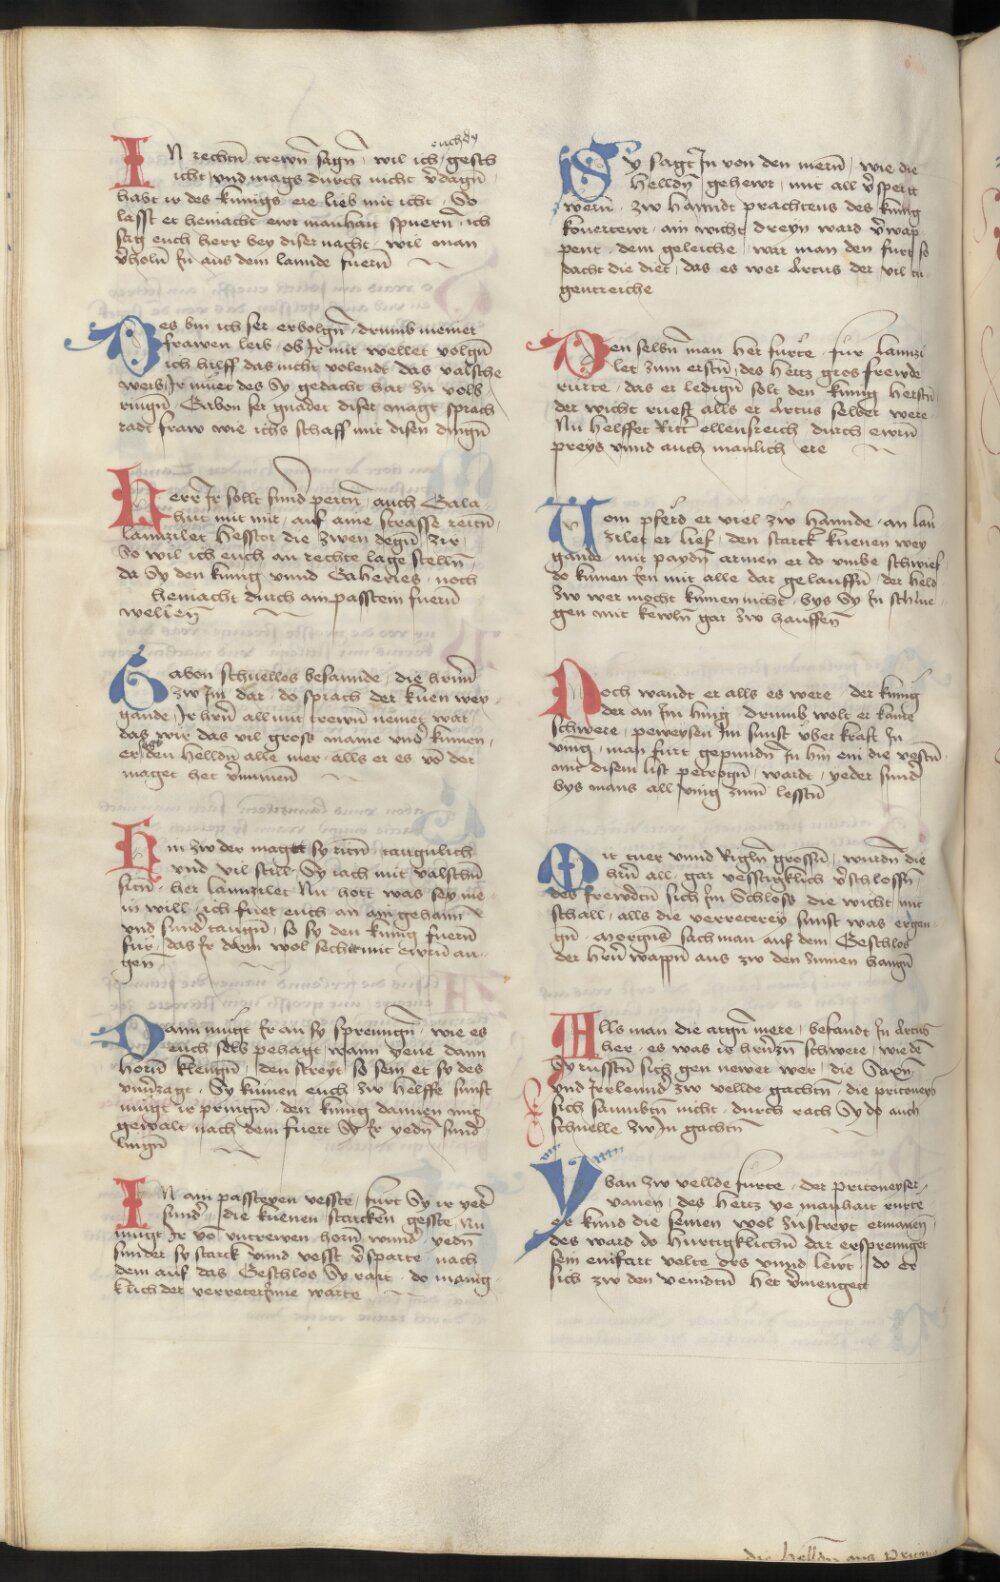 IN rechtn̄ trewn̄ sagn̄ / wil ich euch dy gesch
icht vnd mags durch nicht v̓dagn̄
habt ir des kunigs ere lieb mit icht / So
lasst er heinacht ewr manhait spuern̄ / ich
sag euch herr bey diser nacht / wil man
v̓holn̄ In aus dem lannde fuern̄
Des bin ich ser erbolgn̄ / drumb meiner
frawen leib / ob Ir mir wellet volgn̄
ich hilff das nicht volendt / das valsche
weib / Ir muet des Sy gedacht hat zu volb
ringn̄ / Gabon ser gnadet diser magt / sprach
radt fraw wie ichs schaff mit disen dingn̄
Herr Ir sollt sund̓ pertn̄ / auch Gala
hut mit mir / auf aine strasse reitn̄
lannzilet hesstor die zwen degn̄ zir
So wil ich euch an rechte lage stelln̄
da Sy den kunig vnnd Gaheries / noch
heinacht durch ain passtein fuern̄
wellen̄
Gabon schnellos besannde / die hrnn̄
zw Im dar / do sprach der kuen wey
gande / Ir hrn̄ all mit trewn̄ nemet war
das wir das vil gross maine vnd̓ kumen
er sagt den helldn̄ alle mer / alls er es vō der
maget het v̓numen̄
Hin zw der magtt sy ritn̄ / taugnlich
vnd vil still / Sy iach mit valschn̄
sitn̄ / her lannzilet Nu hort was sey me
in will / ich fuer euch an ain gehaim
vnd sund̓ taugn̄ / so sy den kunig fuern̄
fur / das Ir dann wol secht mit ewrn̄ au
gen̄
Dann mugt Ir an sy sprenngn̄ / wie es
euch selbs pehagt / wann yene dann
horn̄ klengn̄ / den streyt / so sein et sy des
vnu̓zagt / Sy kumen euch zw helffe sunst
mugt ir pringn̄ / den kunig dannen mit
gewalt nach dem fuert Sy Ir yedn̄ sund̓
lingn̄
IN ain passteyen vesste / furt Sy ir yed̓
sund̓ / die kuenen starcken gesste / Nu
mugt Ir vō vntrewen horn̄ wund̓ / yedn̄
sunder sy starck vnnd vesst v̓sparte / nach
dem auf das Geschlos Sy rait / do manig
klich der verreterinne warte
Sy sagt In von den mern̄ / wie die
helldn̄ gehewr / mit all v̓sperrt
wern̄ / zw hanndt prachtens des kunig
kouertewr / ain wicht dreyn ward v̓wap
pent / dem geleiche / war man den furt so
dacht die diet / das es wer Artus der vil tu
gentreiche
Den selbn̄ man her furte / fur lannzi
let zum erstn̄ / des hertz gros frewde
rurte / das er ledign̄ solt den kunig herstn̄
der wicht ruefft alls er Artus selber were
Nu helffet Ritt̓ ellensreich durch ewrn̄
preys vnnd auch manlich ere
Vom pferd er viel zw hannde / an lan
zilet er lief / den starck kuenen wey
gande / mit paydn̄ armen er do vmbe schwief
do kumen Ien mit alle dar gelauffn̄ / der held
zw wer mocht kumen nicht / bys Sy In schlue
gen mit kewln̄ gar zw hauffen̄
Noch wandt er alls es were / der kunig
der an Im hing / drumb wolt er kaine
schwere / peweysen Im sunst vber kraft In
vnng / man furt gepundn̄ In hin ein die vestn̄
mit disem list petrogn̄ / wardt / yeder sund̓
bys mans all vnng zum lesstn̄
Mit tuer vnnd Rigln̄ grossn̄ / wurdn̄ die
hrn̄ all / gar vesstigklich v̓schlossn̄
des frewdtn̄ sich im Schloss die wicht mit
schall / alls die verreterey sunst was ergan
gn̄ / morgns sach man auf dem Geschlos
der hrn̄ wappn̄ aus zw den zinnen hangn̄
Alls man die argn̄ mere / befandt In Artus
her / es was ir hrn̄zn̄ schwere / wie dē
Sy russtn̄ sich gen newer wer / die Saxn̄
vnd Irrlennd̓ zw vellde gachtn̄ / die pritoneys
sich sambtn̄ nicht / durch rach Sy do auch
schnelle zw In gachtn̄
Yban zw vellde furte / der pritoneyser
vanen / des hertz ye manhait rurte
er kund die seinen wol zu streyt ermanen̄
des ward do hurtigklichn̄ dar ersprennget
sein einfart velte ors vnnd lewt / do er
sich zw den veindtn̄ het v̓mengett
die helldn̄ aus